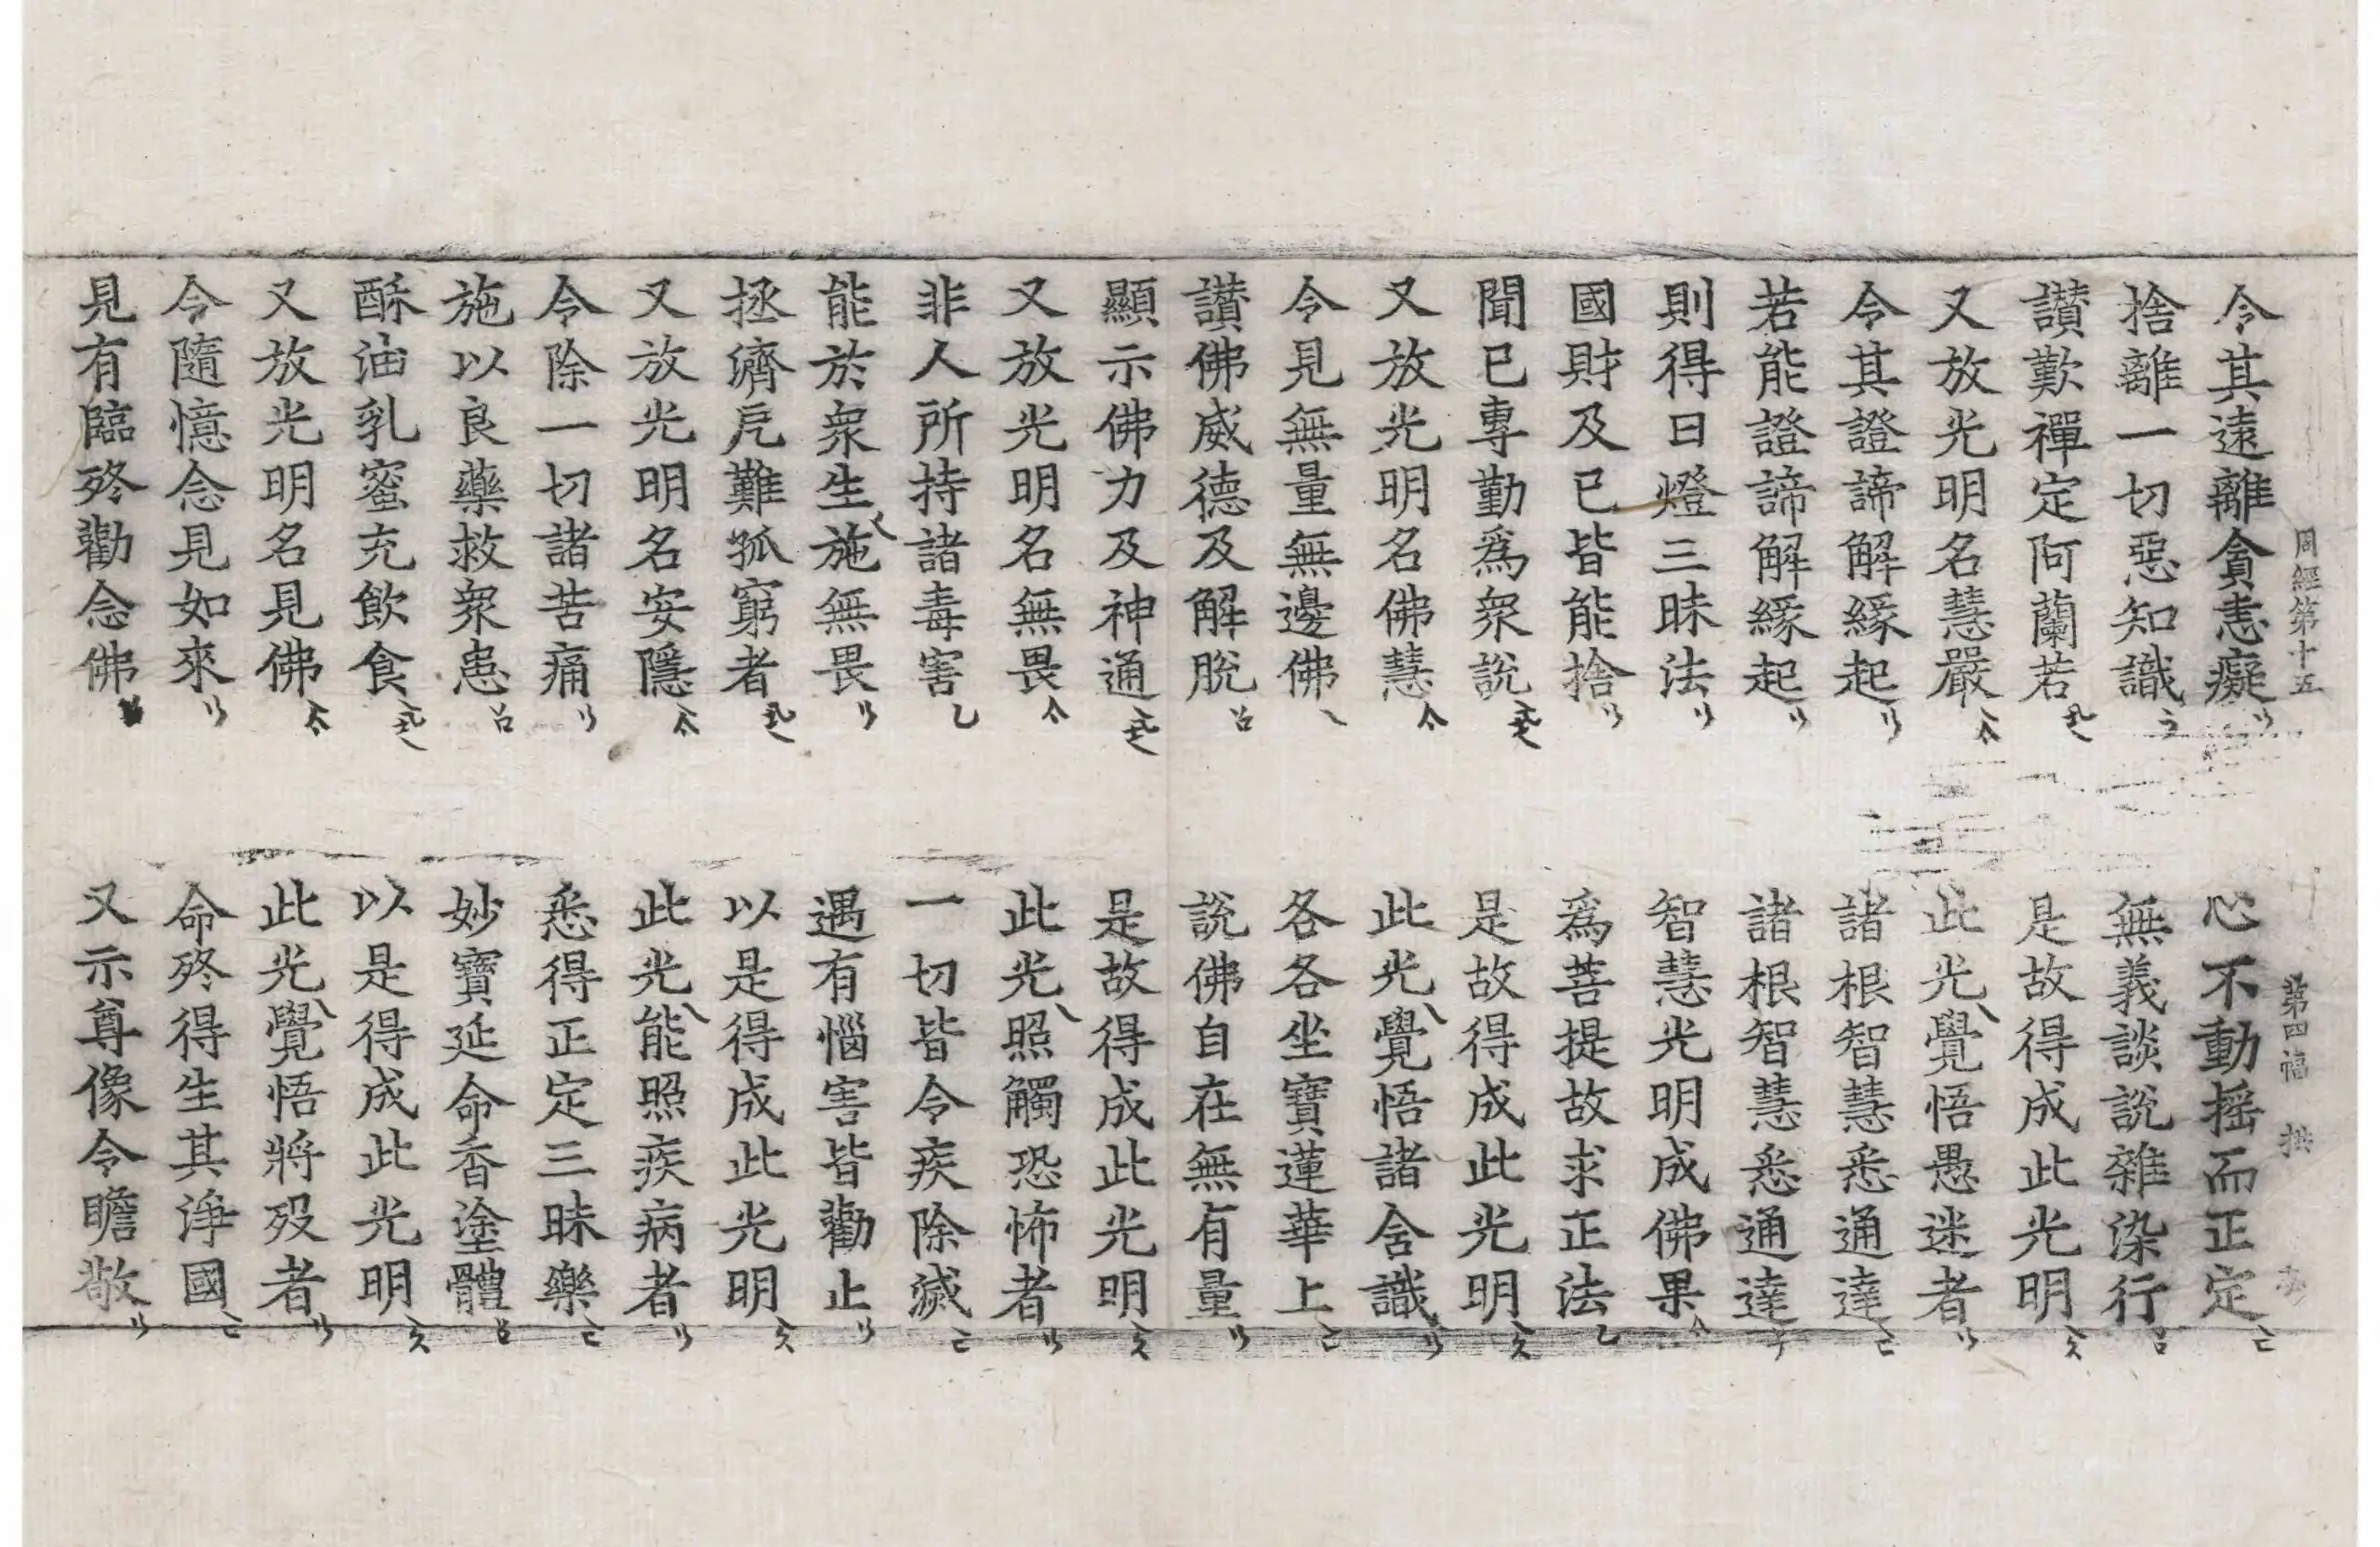 周經第十五 第四幅 拱
令其遠離貪恚癡 心不動搖而正定
捨離一切惡知識 無義談說雜染行
讃歎禪定阿蘭若 是故得成此光明
又放光明名慧嚴 此光覺悟愚迷者
令其證諦解緣起 諸根智慧悉通達
若能證諦解緣起 諸根智慧悉通達
則得日燈三昧法 智慧光明成佛果
國財及己皆能捨 爲菩提故求正法
聞已專勤爲衆說 是故得成此光明
又放光明名佛慧 此光覺悟諸含識
令見無量無邊佛 各各坐寶蓮華上
讃佛威德及解脫 說佛自在無有量
顯示佛力及神通 是故得成此光明
又放光明名無畏 此光照觸恐怖者
非人所持諸毒害 一切皆令疾除滅
能於衆生施無畏 遇有惱害皆勸止
拯濟危難孤窮者 以是得成此光明
又放光明名安隱 此光能照疾病者
令除一切諸苦痛 悉得正定三昧樂
施以良藥救衆患 妙寶延命香塗體
酥油乳蜜充飮食 以是得成此光明
又放光明名見佛 此光覺悟將歿者
令隨憶念見如來 命終得生其淨國
見有臨終勸念佛 又示尊像令瞻敬